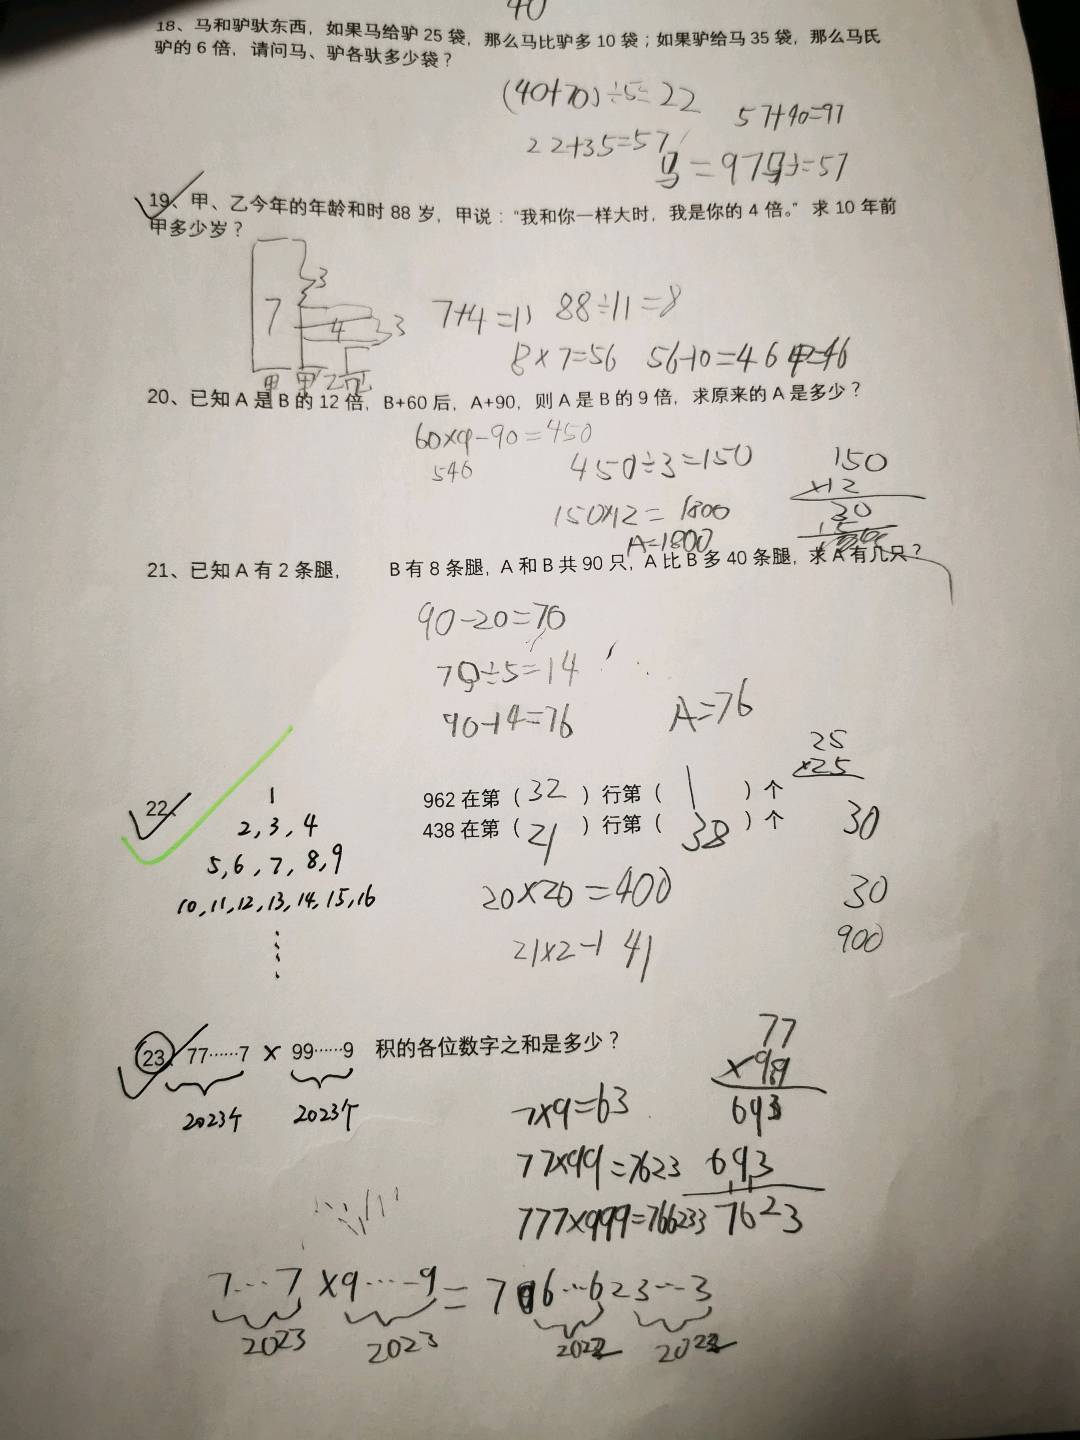 40
18、马和驴驮东西，如果马给驴 25 袋，那么马比驴多 10 袋；如果驴给马 35 袋，那么马氏
驴的 6 倍，请问马、驴各驮多少袋？
(40+70)÷5=22
57+40=97
22+35=57
马=97 驴=57
19、甲、乙今年的年龄和时 88 岁，甲说：“我和你一样大时，我是你的 4 倍。” 求 10 年前
甲多少岁？
3
7
4
3
甲 甲 乙
7+4=11 88÷11=8
8×7=56 56-10=46 甲=46
20、已知 A 是 B 的 12 倍，B+60 后，A+90，则 A 是 B 的 9 倍，求原来的 A 是多少？
60×9-90=450
546
450÷3=150
150
×12
30
150×12=1800
A=1800
21、已知 A 有 2 条腿， B 有 8 条腿，A 和 B 共 90 只，A 比 B 多 40 条腿，求 A 有几只？
90-20=70
70÷5=14
90-14=76
A=76
25
×25
22、
1
2,3,4
5,6,7,8,9
10,11,12,13,14,15,16
962 在第（ 32 ）行第（ 1 ）个
438 在第（ 21 ）行第（ 38 ）个
30
20×20=400
30
21×2-1 41
900
23、77……7 × 99……9 积的各位数字之和是多少？
2023个 2023个
77
×99
693
693
7623
7×9=63
77×99=7623
777×999=766233
7…7×9…9=76…623…3
2023 2023 2022 2022